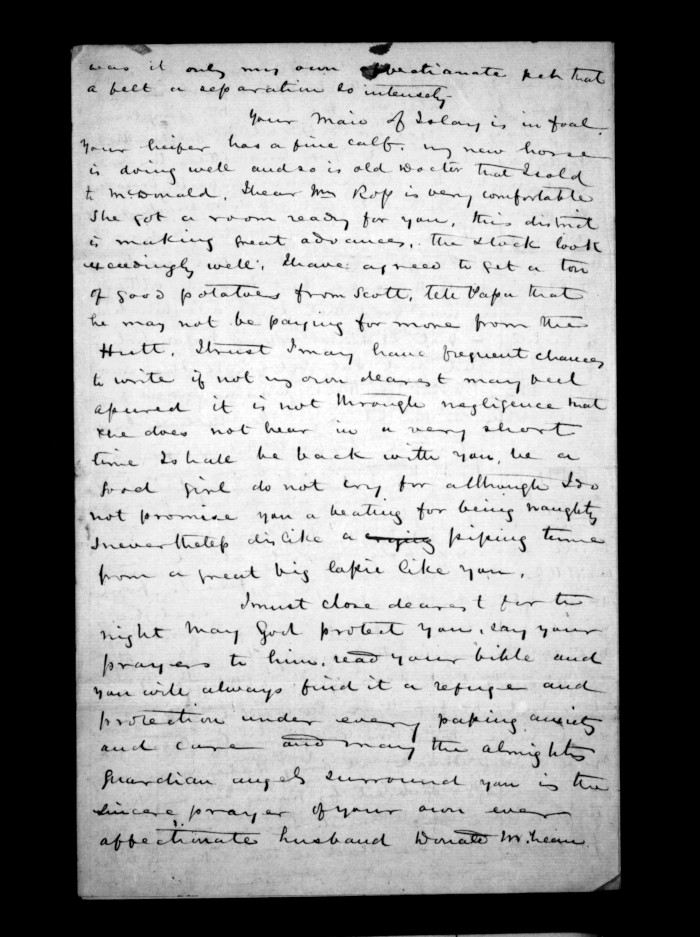 was it only my own affectionate pet that
a felt a separation so intensely
Your Maid of Islay is in foal.
Your heifer has a fine calf. my new horse
is doing well and so is old Doctor that I sold
to McDonald, I hear Mrs Ross is very comfortable
She got a room ready for you, this district
is making great advances, the stock look
exceedingly well; I have agreed to get a ton
of good potatoes from Scott, tell Papa that
he may not be paying for more from the
Hutt. I trust I may have frequent chances
to write if not my own dearest may feel
assured it is not through negligence that
she does not hear in a very short
time I shall be back with you, be a
good girl do not cry for although I do
not promise you a beating for being naughty
I nevertheless dislike a crying piping tune
from a great big lassie like you.
I must close dearest for the
night May God protect you, say your
prayers to him, read your bible and
you will always find it a refuge and
protection under every passing anxiety
and care and may the almightys
guardian angels surround you is the
sincere prayer of your own ever
affectionate husband Donald McLean